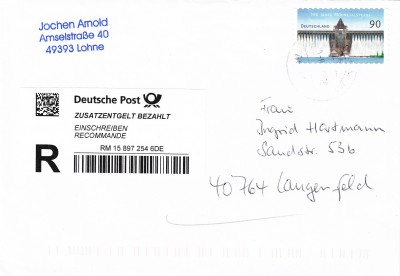 Jochen Arnold
Amselstraße 40
49393 Lohne
DEUTSCHLAND 90
Deutsche Post
ZUSATZENTGELT BEZAHLT
EINSCHREIBEN
RECOMMANDE
R
RM 15 897 254 6DE
Frau
Ingrid Hartmann
Sandstr. 53b
40764 Langenfeld